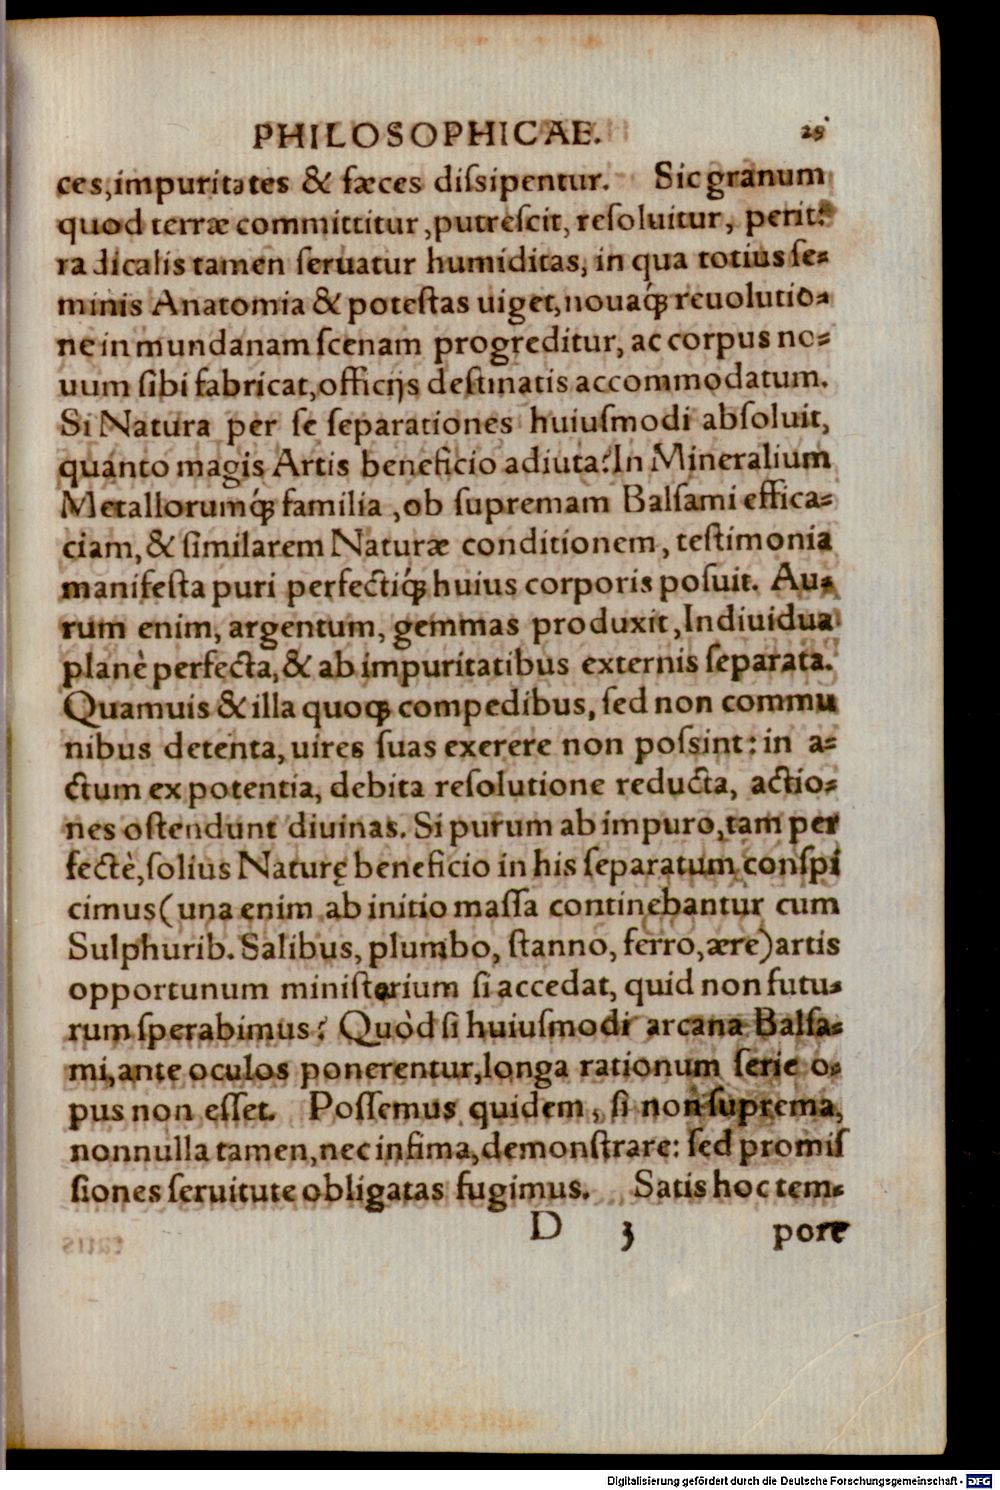 PHILOSOPHICAE. 29
ces, impuritates & fæces dissipentur. Sic granum
quod terræ committitur, putrescit, resoluitur, perit:
radicalis tamen seruatur humiditas, in qua totius se=
minis Anatomia & potestas uiget, nouaq́; reuolutio=
ne in mundanam scenam progreditur, ac corpus no=
uum sibi fabricat, officijs destinatis accommodatum.
Si Natura per se separationes huiusmodi absoluit,
quanto magis Artis beneficio adiuta? In Mineralium
Metallorumq́; familia, ob supremam Balsami effica=
ciam, & similarem Naturæ conditionem, testimonia
manifesta puri perfectiq́; huius corporis posuit. Au=
rum enim, argentum, gemmas produxit, Indiuidua
planè perfecta, & ab impuritatibus externis separata.
Quamuis & illa quoq; compedibus, sed non commu
nibus detenta, uires suas exerere non possint: in a=
ctum ex potentia, debita resolutione reducta, actio=
nes ostendunt diuinas. Si purum ab impuro, tam per
fectè, solius Naturę beneficio in his separatum conspi
cimus (una enim ab initio massa continebantur cum
Sulphurib. Salibus, plumbo, stanno, ferro, ære) artis
opportunum ministerium si accedat, quid non futu=
rum sperabimus? Quòd si huiusmodi arcana Balsa=
mi, ante oculos ponerentur, longa rationum serie o=
pus non esset. Possemus quidem, si non suprema,
nonnulla tamen, nec infima, demonstrare: sed promis
siones seruitute obligatas fugimus. Satis hoc tem=
D 3 pore
Digitalisierung gefördert durch die Deutsche Forschungsgemeinschaft - DFG